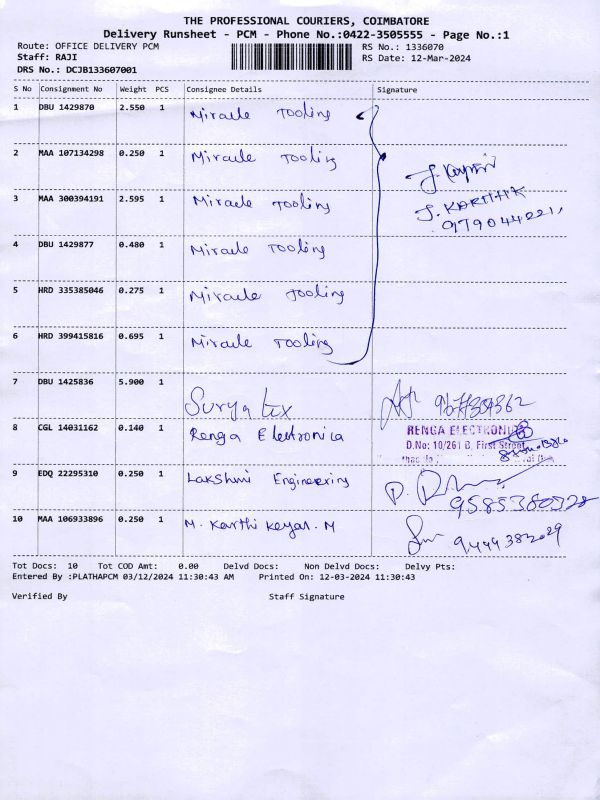 THE PROFESSIONAL COURIERS, COIMBATORE
Delivery Runsheet - PCM - Phone No.:0422-3505555 - Page No.:1
Route: OFFICE DELIVERY PCM
RS No.: 1336070
Staff: RAJI
RS Date: 12-Mar-2024
DRS No.: DCJB133607001
S No Consignment No Weight PCS Consignee Details Signature
1 DBU 1429870 2.550 1 Miracle Tooling
2 MAA 107134298 0.250 1 Miracle Tooling
3 MAA 300394191 2.595 1 Miracle Tooling J. KARTHIK
4 DBU 1429877 0.480 1 Miracle Tooling
5 HRD 335385046 0.275 1 Miracle Tooling
6 HRD 399415816 0.695 1 Miracle Tooling
7 DBU 1425836 5.900 1 Surya tex
8 CGL 14031162 0.140 1 Renga Electronica RENGA ELECTRONICS
D.No: 10/261 B, First Street
9 EDQ 22295310 0.250 1 Lakshmi Engineering
10 MAA 106933896 0.250 1 M. Karthi Keyan. M
Tot Docs: 10 Tot COD Amt: 0.00 Delvd Docs: Non Delvd Docs: Delvy Pts:
Entered By :PLATHAPCM 03/12/2024 11:30:43 AM Printed On: 12-03-2024 11:30:43
Verified By Staff Signature